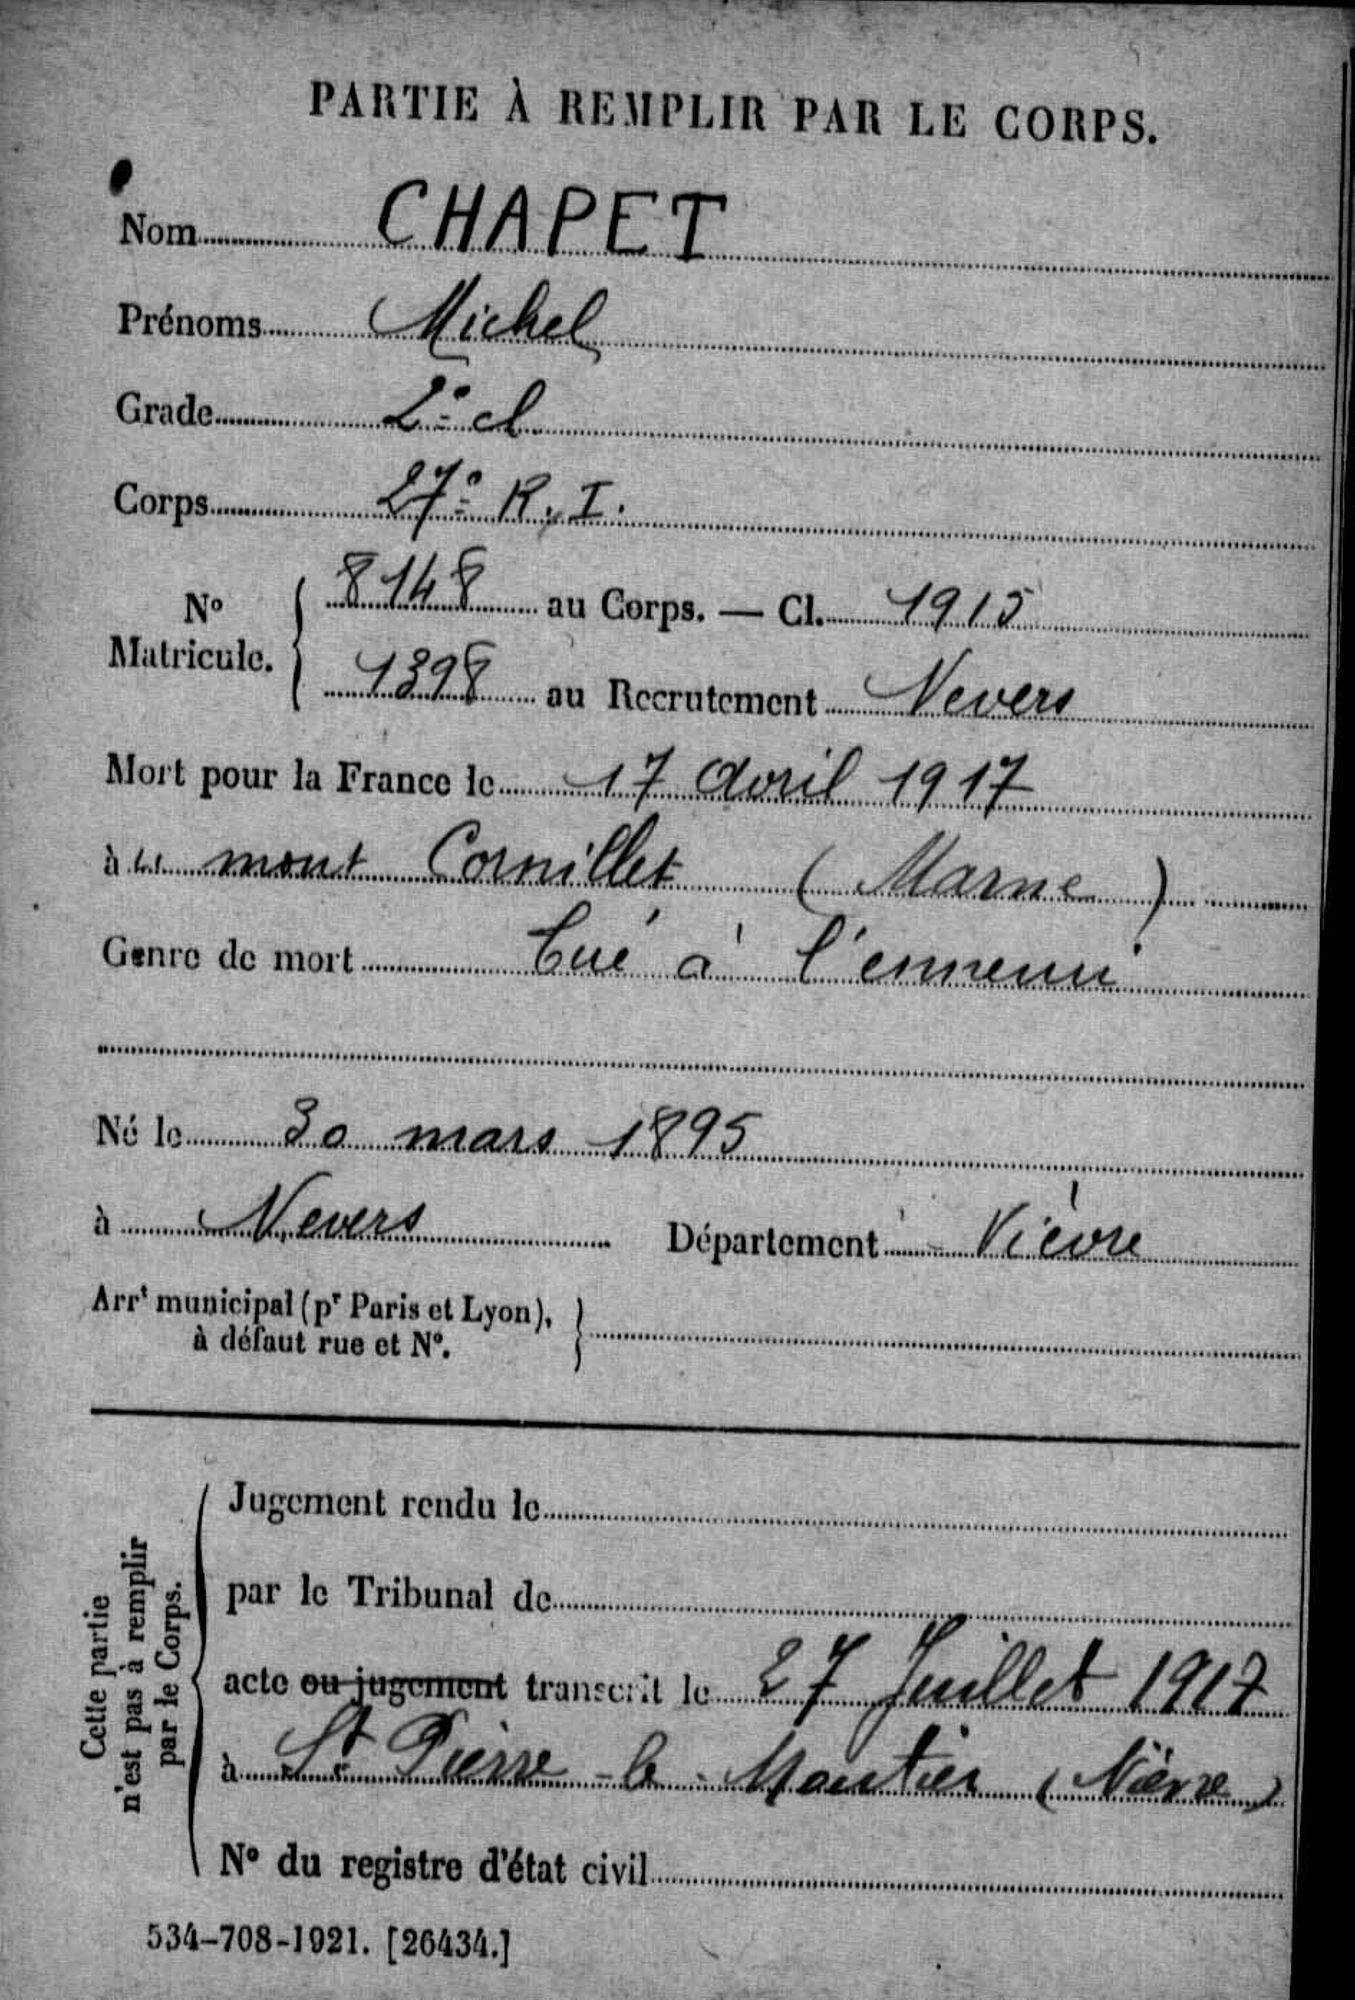 PARTIE À REMPLIR PAR LE CORPS.
Nom CHAPET
Prénoms Michel
Grade 2e cl
Corps 27e R. I.
No Matricule. 8148 au Corps. — Cl. 1915
1398 au Recrutement Nevers
Mort pour la France le 17 Avril 1917
à u mont Cornillet (Marne)
Genre de mort Tué à l'ennemi
Né le 30 mars 1895
à Nevers Département Nièvre
Arrt municipal (pr Paris et Lyon),
à défaut rue et No.
Cette partie
n'est pas à remplir
par le Corps.
Jugement rendu le
par le Tribunal de
acte ou jugement transcrit le 27 Juillet 1917
à St Pierre-le-Moutier (Nièvre)
No du registre d'état civil
534-708-1921. [26434.]